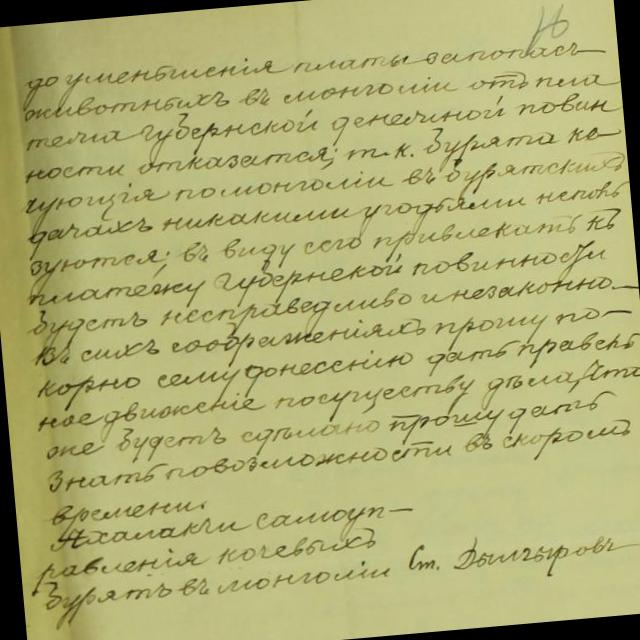 до уменьшенія платы запопасъ
животныхъ въ монголіи отъ пла
тежа губернской денежной повин
ности отказатся; т.к. бурята ко-
чующія помонголіи въ бурятскихъ
дачахъ никакими угодьями неполь
зуются; въ виду сего привлекать къ
платежу губернской повинности
будетъ несправедливо и незаконно.
Въ сихъ соображеніяхъ прошу по-
корно сему донесенію дать правель
ное движеніе посуществу дѣла, Что
же будетъ сдѣлано прошу дать
Знать повозможности въ скоромъ
времени.
самоуп-
равленія кочевыхъ
Бурятъ въ монголіи Ст. Дылчыровъ